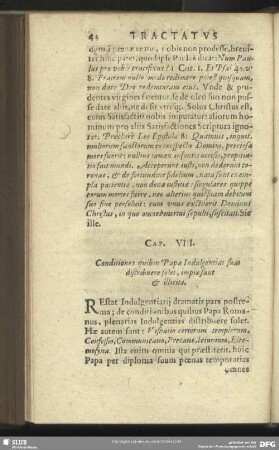 42 TRACTATVS
lus pro vobis crucifixus? 1 Cor. 1. Et Psal. 49. v.
8. Fratrem nullo modo redimere potest quisquam,
non dare Deo redemtionem ejus. Unde & pru-
dentes virgines fatentur, se de oleo suo non pos-
se dare aliis, ne desit utrisque. Solus Christus est,
cujus Satisfactio nobis imputatur: aliorum ho-
minum pro aliis Satisfactiones Scriptura igno-
rat. Præclarè Leo Epistola 81. Quamvis, inquit,
multorum sanctorum in conspectu Domini, pretiosa
mors fuerit: nullius tamen insontis occisio, propitia-
tio fuit mundi. Acceperunt justi, non dederunt co-
ronas, & de fortitudine fidelium, nata sunt exem-
pla patientiæ, non dona justitiæ: singulares quippe
suo fine persolvit: cum unus extiterit Dominus
Christus, in quo omnes mortui, sepulti, suscitati. Sic
ille.
CAP. VII.
Conditiones quibus Papa Indulgentias suas
distribuere solet, impiæ sunt
& illicitæ.
REstat Indulgentiarij dramatis pars postre-
ma; de conditionibus quibus Papa Roma-
nus, plenarias Indulgentias distribuere solet.
Hæ autem sunt: Visitatio certorum templorum,
Confessio, Communicatio, Precatio, Jejunium, Elee-
mosyna. Ista enim omnia qui præstiterit, huic
Papa per diploma suum pœnas temporarias
omnes